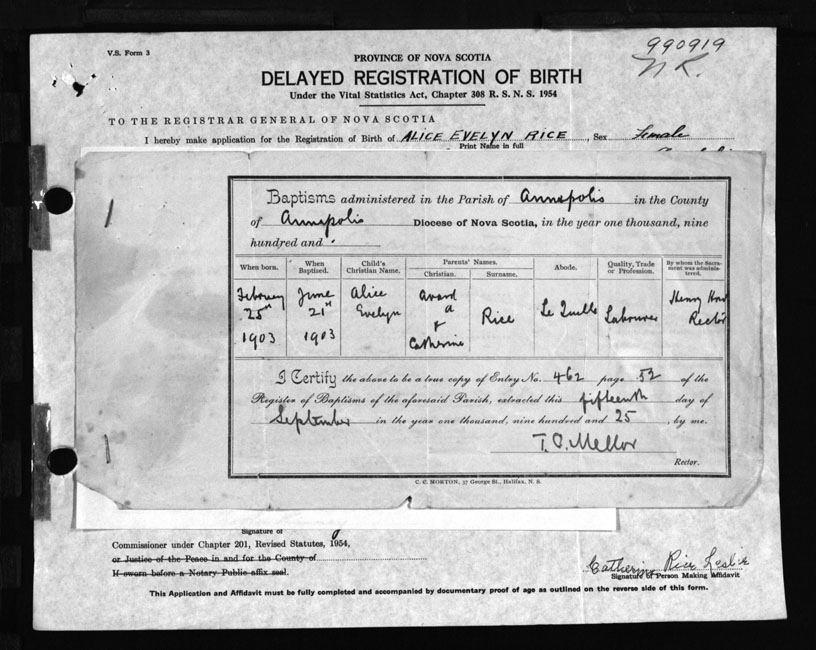 V.S. Form 3
990919
N R.
PROVINCE OF NOVA SCOTIA
DELAYED REGISTRATION OF BIRTH
Under the Vital Statistics Act, Chapter 308 R. S. N. S. 1954
TO THE REGISTRAR GENERAL OF NOVA SCOTIA
I hereby make application for the Registration of Birth of ALICE EVELYN RICE, Sex Female
Print Name in full
Baptisms administered in the Parish of Annapolis in the County
of Annapolis Diocese of Nova Scotia, in the year one thousand, nine
hundred and
When born. When Baptised. Child's Christian Name. Parents' Names. Christian. Surname. Abode. Quality, Trade or Profession. By whom the Sacrament was administered.
February 25th 1903 June 21st 1903 Alice Evelyn Avard a & Catherine Rice Le Quelle Labourer Henry How Rector
I Certify the above to be a true copy of Entry No. 462 page 52 of the
Register of Baptisms of the aforesaid Parish, extracted this fifteenth day of
September in the year one thousand, nine hundred and 25, by me.
T. C. Mellor
Rector.
C. C. MORTON, 37 George St., Halifax, N. S.
Signature of
Commissioner under Chapter 201, Revised Statutes, 1954,
or Justice of the Peace in and for the County of
If sworn before a Notary Public affix seal.
Catherine Rice Leslie
Signature of Person Making Affidavit
This Application and Affidavit must be fully completed and accompanied by documentary proof of age as outlined on the reverse side of this form.